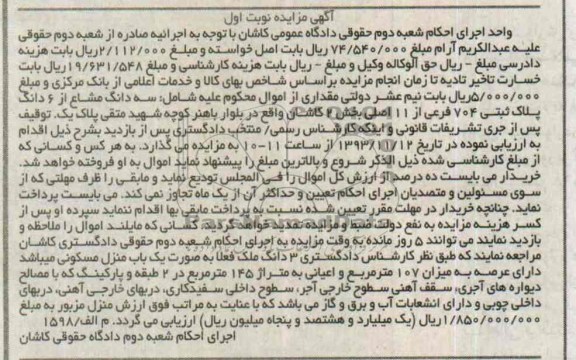 آگهی مزایده نوبت اول
واحد اجرای احکام شعبه دوم حقوقی دادگاه عمومی کاشان با توجه به اجرائیه صادره از شعبه دوم حقوقی
علیه عبدالکریم آرام مبلغ ۷۴/۵۴۰/۰۰۰ ریال بابت اصل خواسته و مبلغ ۲/۱۱۲/۰۰۰ریال بابت هزینه
دادرسی مبلغ - ریال حق الوکاله وکیل و مبلغ - ریال بابت هزینه کارشناسی و مبلغ ۱۹/۶۳۱/۵۴۸ریال بابت
خسارت تاخیر تادیه تا زمان انجام مزایده براساس شاخص بهای کالا و خدمات اعلامی از بانک مرکزی و مبلغ
۵/۰۰۰/۰۰۰ریال بابت نیم عشر دولتی مقداری از اموال محکوم علیه شامل: سه دانگ مشاع از ۶ دانگ
پلاک ثبتی ۷۰۴ فرعی از ۱۱ اصلی بخش ۲ کاشان واقع در بلوار باهنر کوچه شهید متقی پلاک یک. توقیف
پس از جری تشریفات قانونی و اینکه کارشناس رسمی/ منتخب دادگستری پس از بازدید بشرح ذیل اقدام
به ارزیابی نموده در تاریخ ۱۳۹۳/۱۱/۱۲ از ساعت ۱۱-۱۰ به مزایده می گذارد. به هر کس و کسانی که
از مبلغ کارشناسی شده ذیل الذکر شروع و بالاترین مبلغ را پیشنهاد نماید اموال به او فروخته خواهد شد.
خریدار می بایست ده درصد از ارزش کل اموال را فی المجلس تودیع نماید و مابقی را ظرف مهلتی که از
سوی مسئولین و متصدیان اجرای احکام تعیین و حداکثر آن از یک ماه تجاوز نمی کند. می بایست پرداخت
نماید. چنانچه خریدار در مهلت مقرر تعیین شده نسبت به پرداخت مابقی بها اقدام ننماید سپرده او پس از
کسر هزینه مزایده به نفع دولت ضبط و مزایده تجدید خواهد گردید. کسانی که مایلند اموال را ملاحظه و
بازدید نمایند می توانند ۵ روز مانده به وقت مزایده به اجرای احکام شعبه دوم حقوقی دادگستری کاشان
مراجعه نمایند که طبق نظر کارشناس دادگستری ۳ دانگ ملک فعلا به صورت یک باب منزل مسکونی میباشد
دارای عرصه به میزان ۱۰۷ مترمربع و اعیانی به متراژ ۱۴۵ مترمربع در ۲ طبقه و پارکینگ که با مصالح
دیواره های آجری، سقف آهنی سطوح خارجی آجر، سطوح داخلی سفیدکاری، دربهای خارجی آهنی، دربهای
داخلی چوبی و دارای انشعابات آب و برق و گاز می باشد که با عنایت به مراتب فوق ارزش منزل مزبور به مبلغ
۱/۸۵۰/۰۰۰/۰۰۰ریال (یک میلیارد و هشتصد و پنجاه میلیون ریال) ارزیابی می گردد. م الف/۱۵۹۸
اجرای احکام شعبه دوم دادگاه حقوقی کاشان